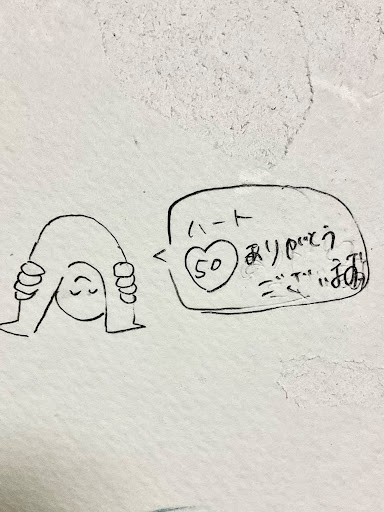 ハート
50 ありがとう
ございます